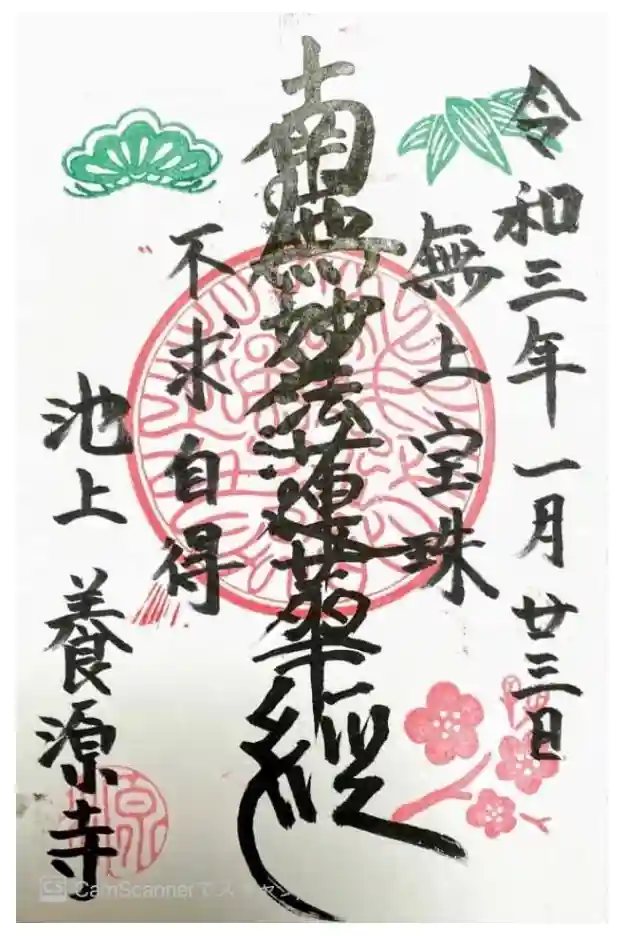 令和三年一月廿三日
無上宝珠
南無妙法蓮華經
不求自得
池上 養源寺
CamScannerでスキャン